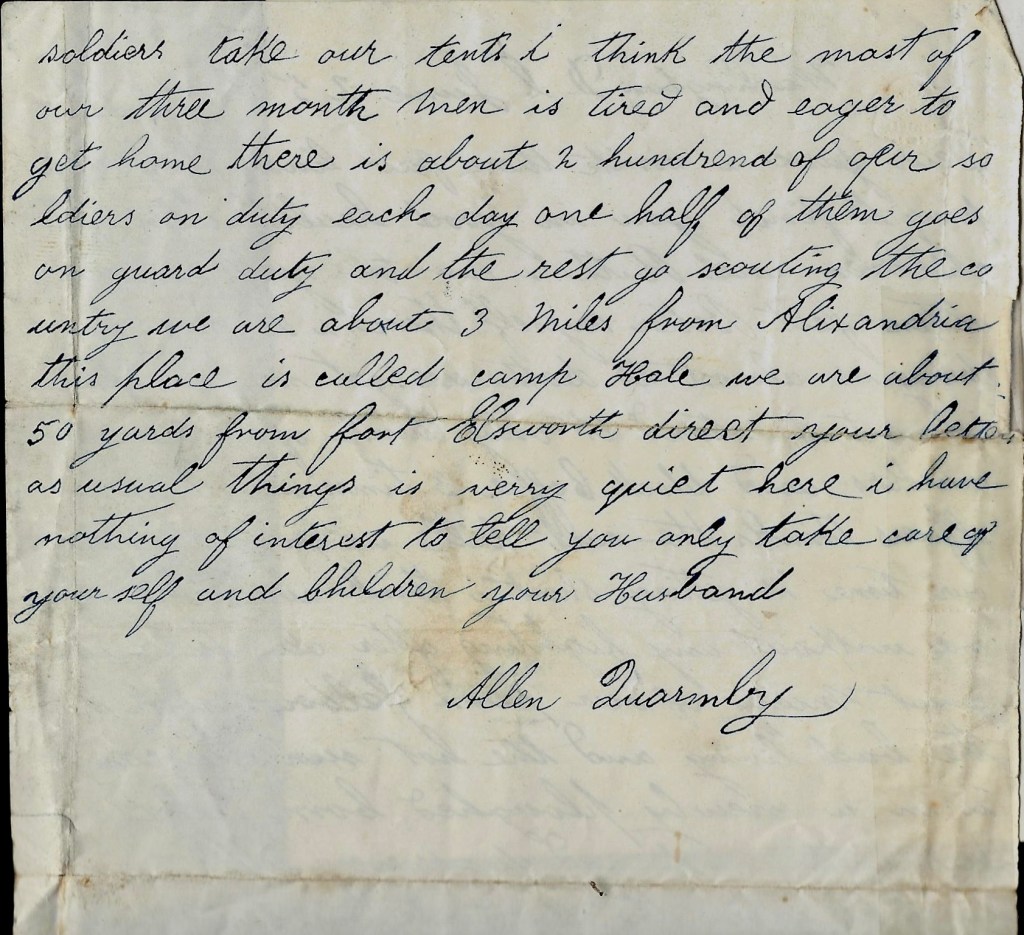 soldiers take our tents i think the most of
our three month men is tired and eager to
get home there is about 2 hundrend of our so
ldiers on duty each day one half of them goes
on guard duty and the rest go scouting the co
untry we are about 3 Miles from Alixandria
this place is called camp Hale we are about
50 yards from fort Elsworth direct your letters
as usual things is verry quiet here i have
nothing of interest to tell you only take care of
your self and Children your Husband
Allen Quarmby